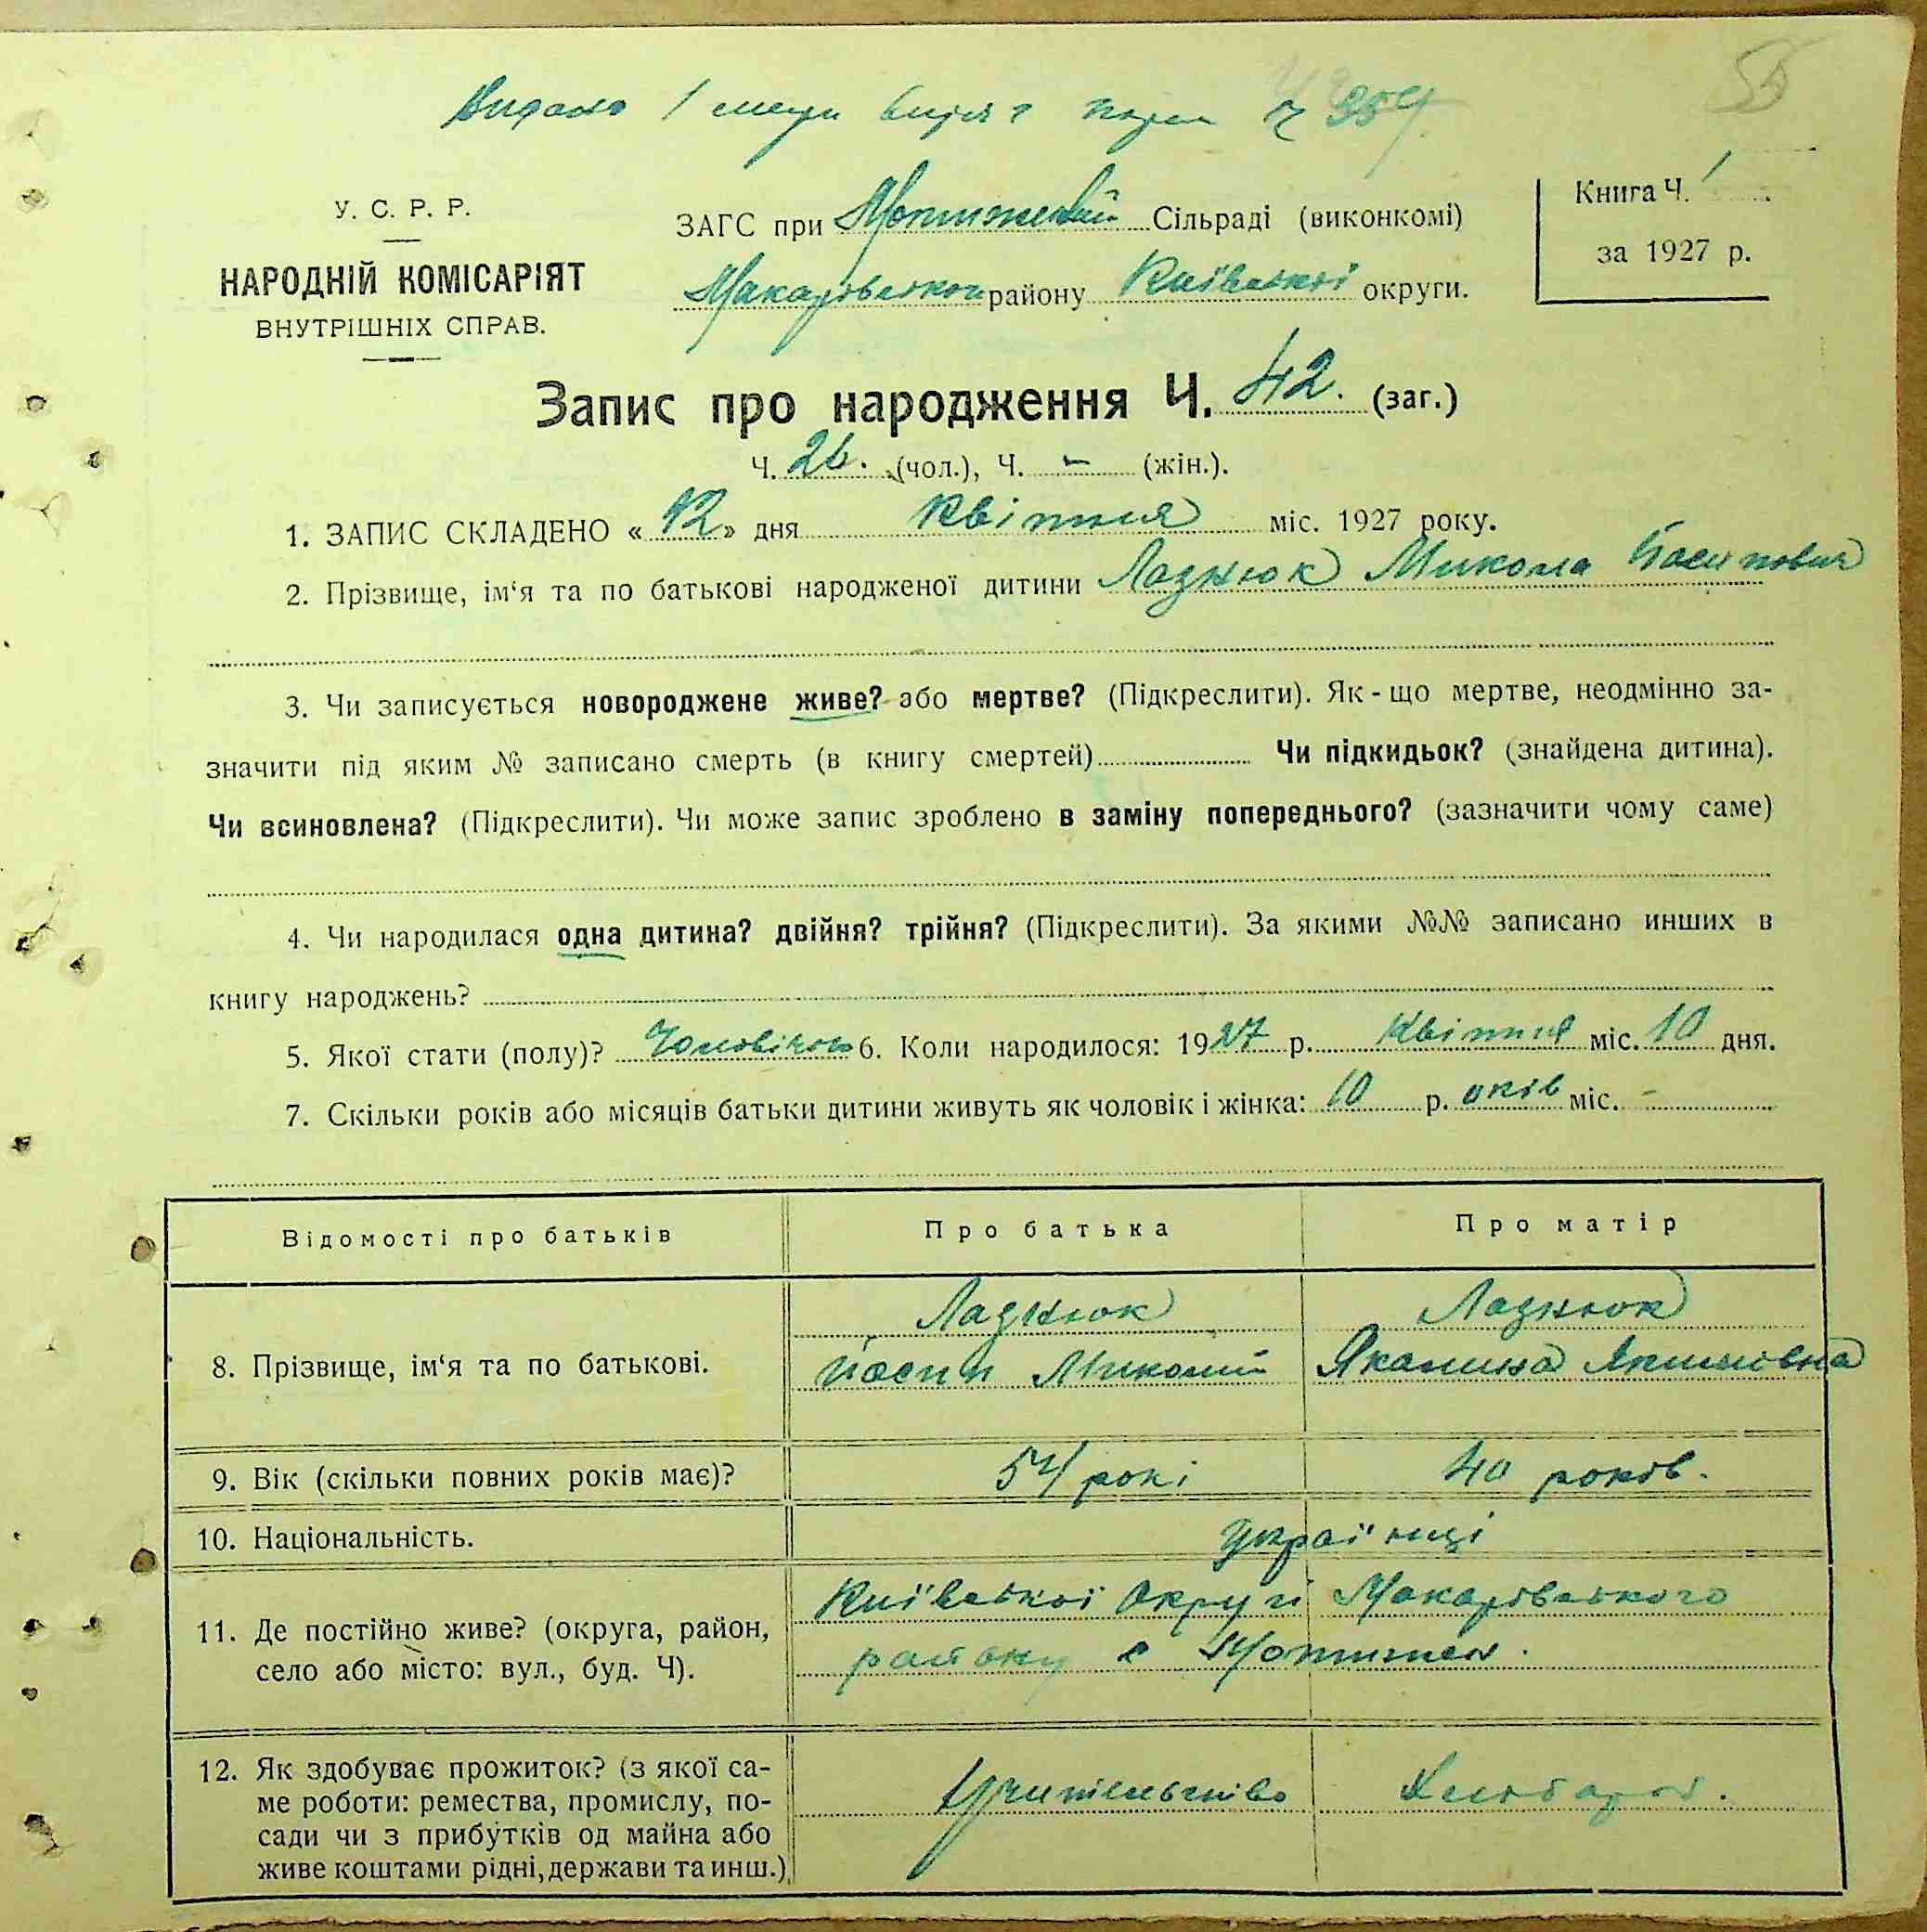 Видано 1 метр витяг
55
У. С. Р. Р.
НАРОДНІЙ КОМІСАРІЯТ
ВНУТРІШНІХ СПРАВ.
ЗАГС при Мотиженській Сільраді (виконкомі)
Макарівського району Київської округи.
Книга Ч. 1
за 1927 р.
Запис про народження Ч. 42. (заг.)
Ч. 26. (чол.), Ч. - (жін.).
1. ЗАПИС СКЛАДЕНО «12» дня Квітня міс. 1927 року.
2. Прізвище, ім'я та по батькові народженої дитини Лазнюк Микола Йосипович
3. Чи записується новороджене живе? або мертве? (Підкреслити). Як-що мертве, неодмінно за-
значити під яким № записано смерть (в книгу смертей) Чи підкидьок? (знайдена дитина).
Чи всиновлена? (Підкреслити). Чи може запис зроблено в заміну попереднього? (зазначити чому саме)
4. Чи народилася одна дитина? двійня? трійня? (Підкреслити). За якими №№ записано инших в
книгу народжень?
5. Якої стати (полу)? Чоловічої 6. Коли народилося: 1927 р. Квітня міс. 10 дня.
7. Скільки років або місяців батьки дитини живуть як чоловік і жінка: 10 р. оків міс. -
Відомості про батьків Про батька Про матір
8. Прізвище, ім'я та по батькові. Лазнюк Лазнюк
Йосип Микол
9. Вік (скільки повних років має)? 54 рокі 40 років.
10. Національність. Українці
11. Де постійно живе? (округа, район,
село або місто: вул., буд. Ч).
Київської Округи Макарівського
району с Мотижен.
12. Як здобуває прожиток? (з якої са-
ме роботи: ремества, промислу, по-
сади чи з прибутків од майна або
живе коштами рідні, держави та инш.)
Учительство Хлібороб.